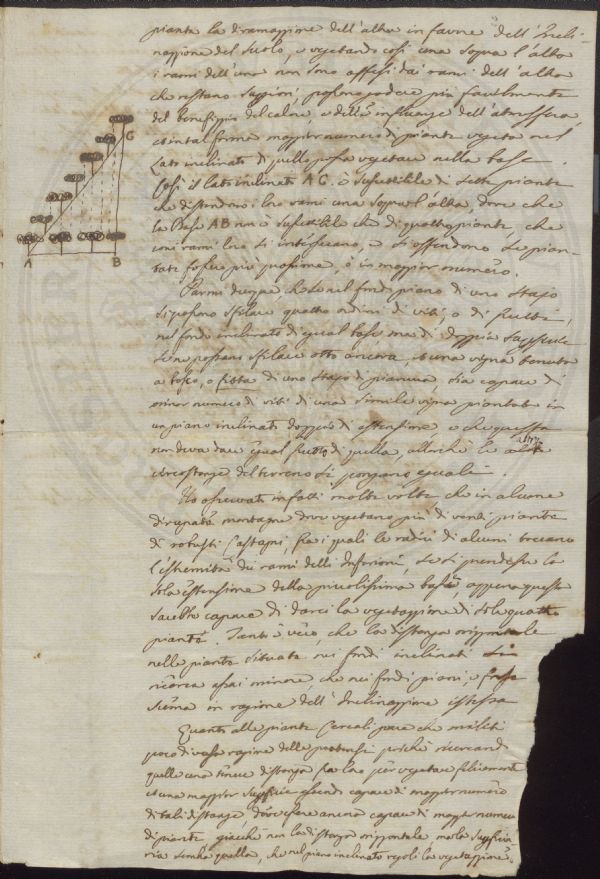 piante la diramazione dell'altra in favore dell'Incli-
nazione del Suolo, e vegetando così una sopra l'altra
i rami dell'una non sono offesi dai rami dell'altra
che restano posson godere più facilmente
del benefizio del calore, e delle influenze dell'atmosfera,
e in tal forma maggior numero di piante vegeta nel
Lato inclinato di quello possa vegetare nella base.
Così il lato inclinato AC. è suscettibile di sette piante
che distendono i loro rami una sopra l'altra, dove che
la Base AB non è suscettibile che di quattro piante, che
coi rami loro si intersecano, e si offendono se pian-
tate fosser più prossime, o in maggior numero.
Parmi dunque, che se nel fondo piano di uno Stajo
si possono sfilare quattro ordini di viti, o di frutti,
nel fondo inclinato di egual base ma di doppia superficie
se ne possano sfilare otto ancora, e una vigna tenuta
a bosco, o fitta di uno Stajo di pianura, sia capace di
minor numero di viti di una simile vigna piantata in
un piano inclinato doppio di estensione, e che questa
non deva dare egual frutto di quella, allorchè le altre
circostanze del terreno si pongano eguali.
Ho osservato infatti molte volte che in alcune
dirupate montagne dove vegetano più di venti piante
di robusti Castagni, fra i quali le radici di alcuni toccano
l'estremità dei rami delli Inferiori, se si prendesse la
sola estensione della piccolissima base, appena questa
sarebbe capace di darci la vegetazione di sole quattro
piante. Tanto è vero, che la distanza orizzontale
nelle piante situate nei fondi inclinati si
ricerca assai minore, che nei fondi piani, e
in ragione dell'Inclinazione istessa
Quanto alle piante Cereali pare che militi
poco diversa ragione delle poichè ricercando
quelle una tenue distanza fra loro per vegetare felicemente
e una maggior superficie essendo capace di maggior numero
di tali distanze, dovrà essere ancora capace di maggior numero
di piante, giacchè non la distanza orizzontale ma la superficia-
ria sembra quella, che nel piano inclinato regoli la vegetazione.
C
A
B